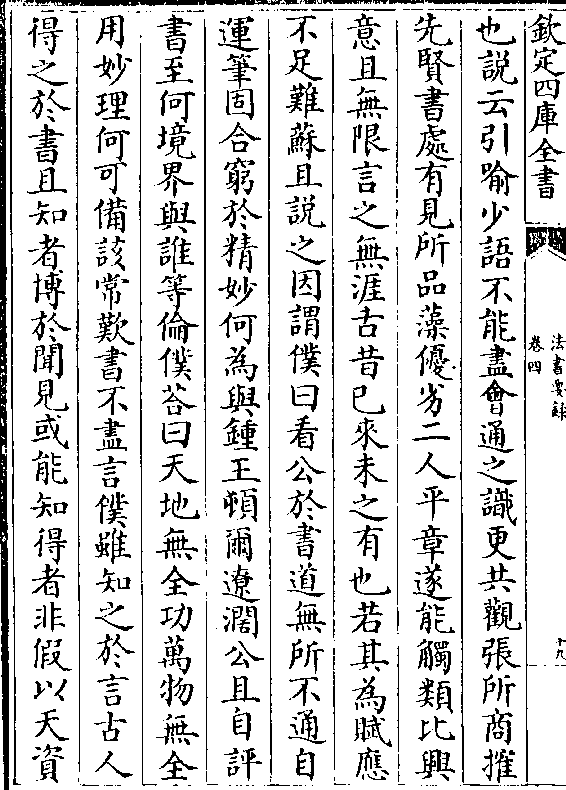 欽定四庫全書
法書要錄
卷四
十九
也説云引喻少語不能盡會通之識更共觀張所商搉
先賢書處有見所品藻優劣二人平章遂能觸類比興
意且無限言之無涯古昔已來未之有也若其為賦應
不足難蘇且説之因謂僕曰看公於書道無所不通自
運筆固合窮於精妙何為與鍾王頓爾遼濶公且自評
書至何境界與誰等倫僕荅曰天地無全功萬物無全
用妙理何可備該常歎書不盡言僕雖知之於言古人
得之於書且知者博於聞見或能知得者非假以天資